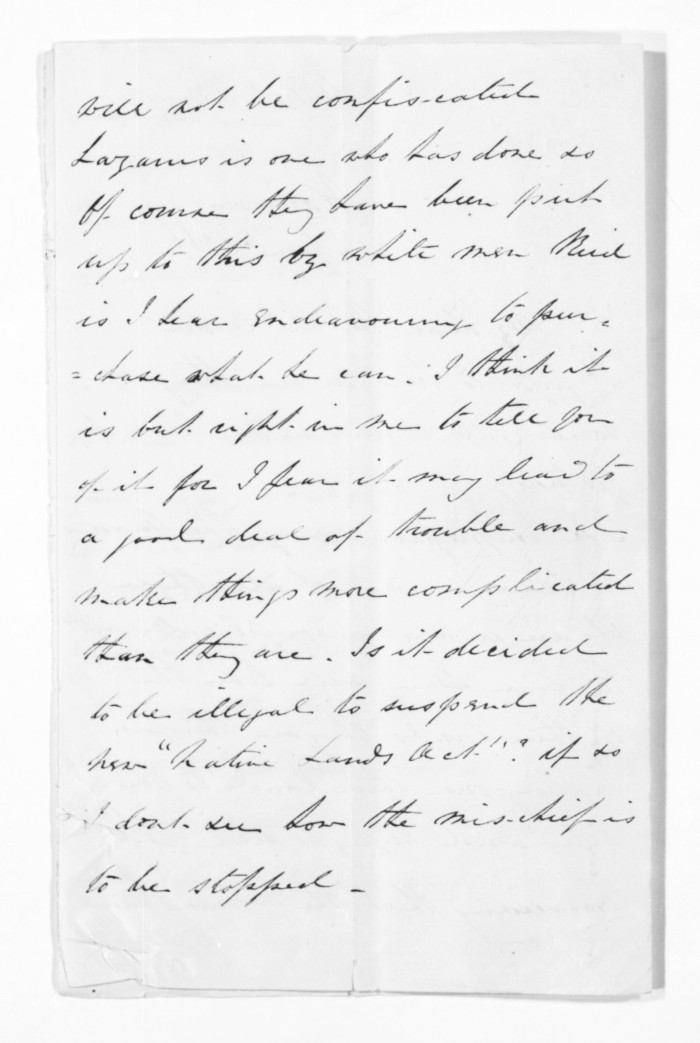 will not be confis-cated
Lazarus is one who has done so
Of course they have been put
up to this by white men Reid
is I hear endeavouring to pur=
=chase what he can. I think it
is but right in me to tell you
of it for I fear it may lead to
a good deal of trouble and
make things more complicated
than they are. Is it decided
to be illegal to suspend the
new "Native Lands Act"? if so
I dont see how the mischief is
to be stopped -